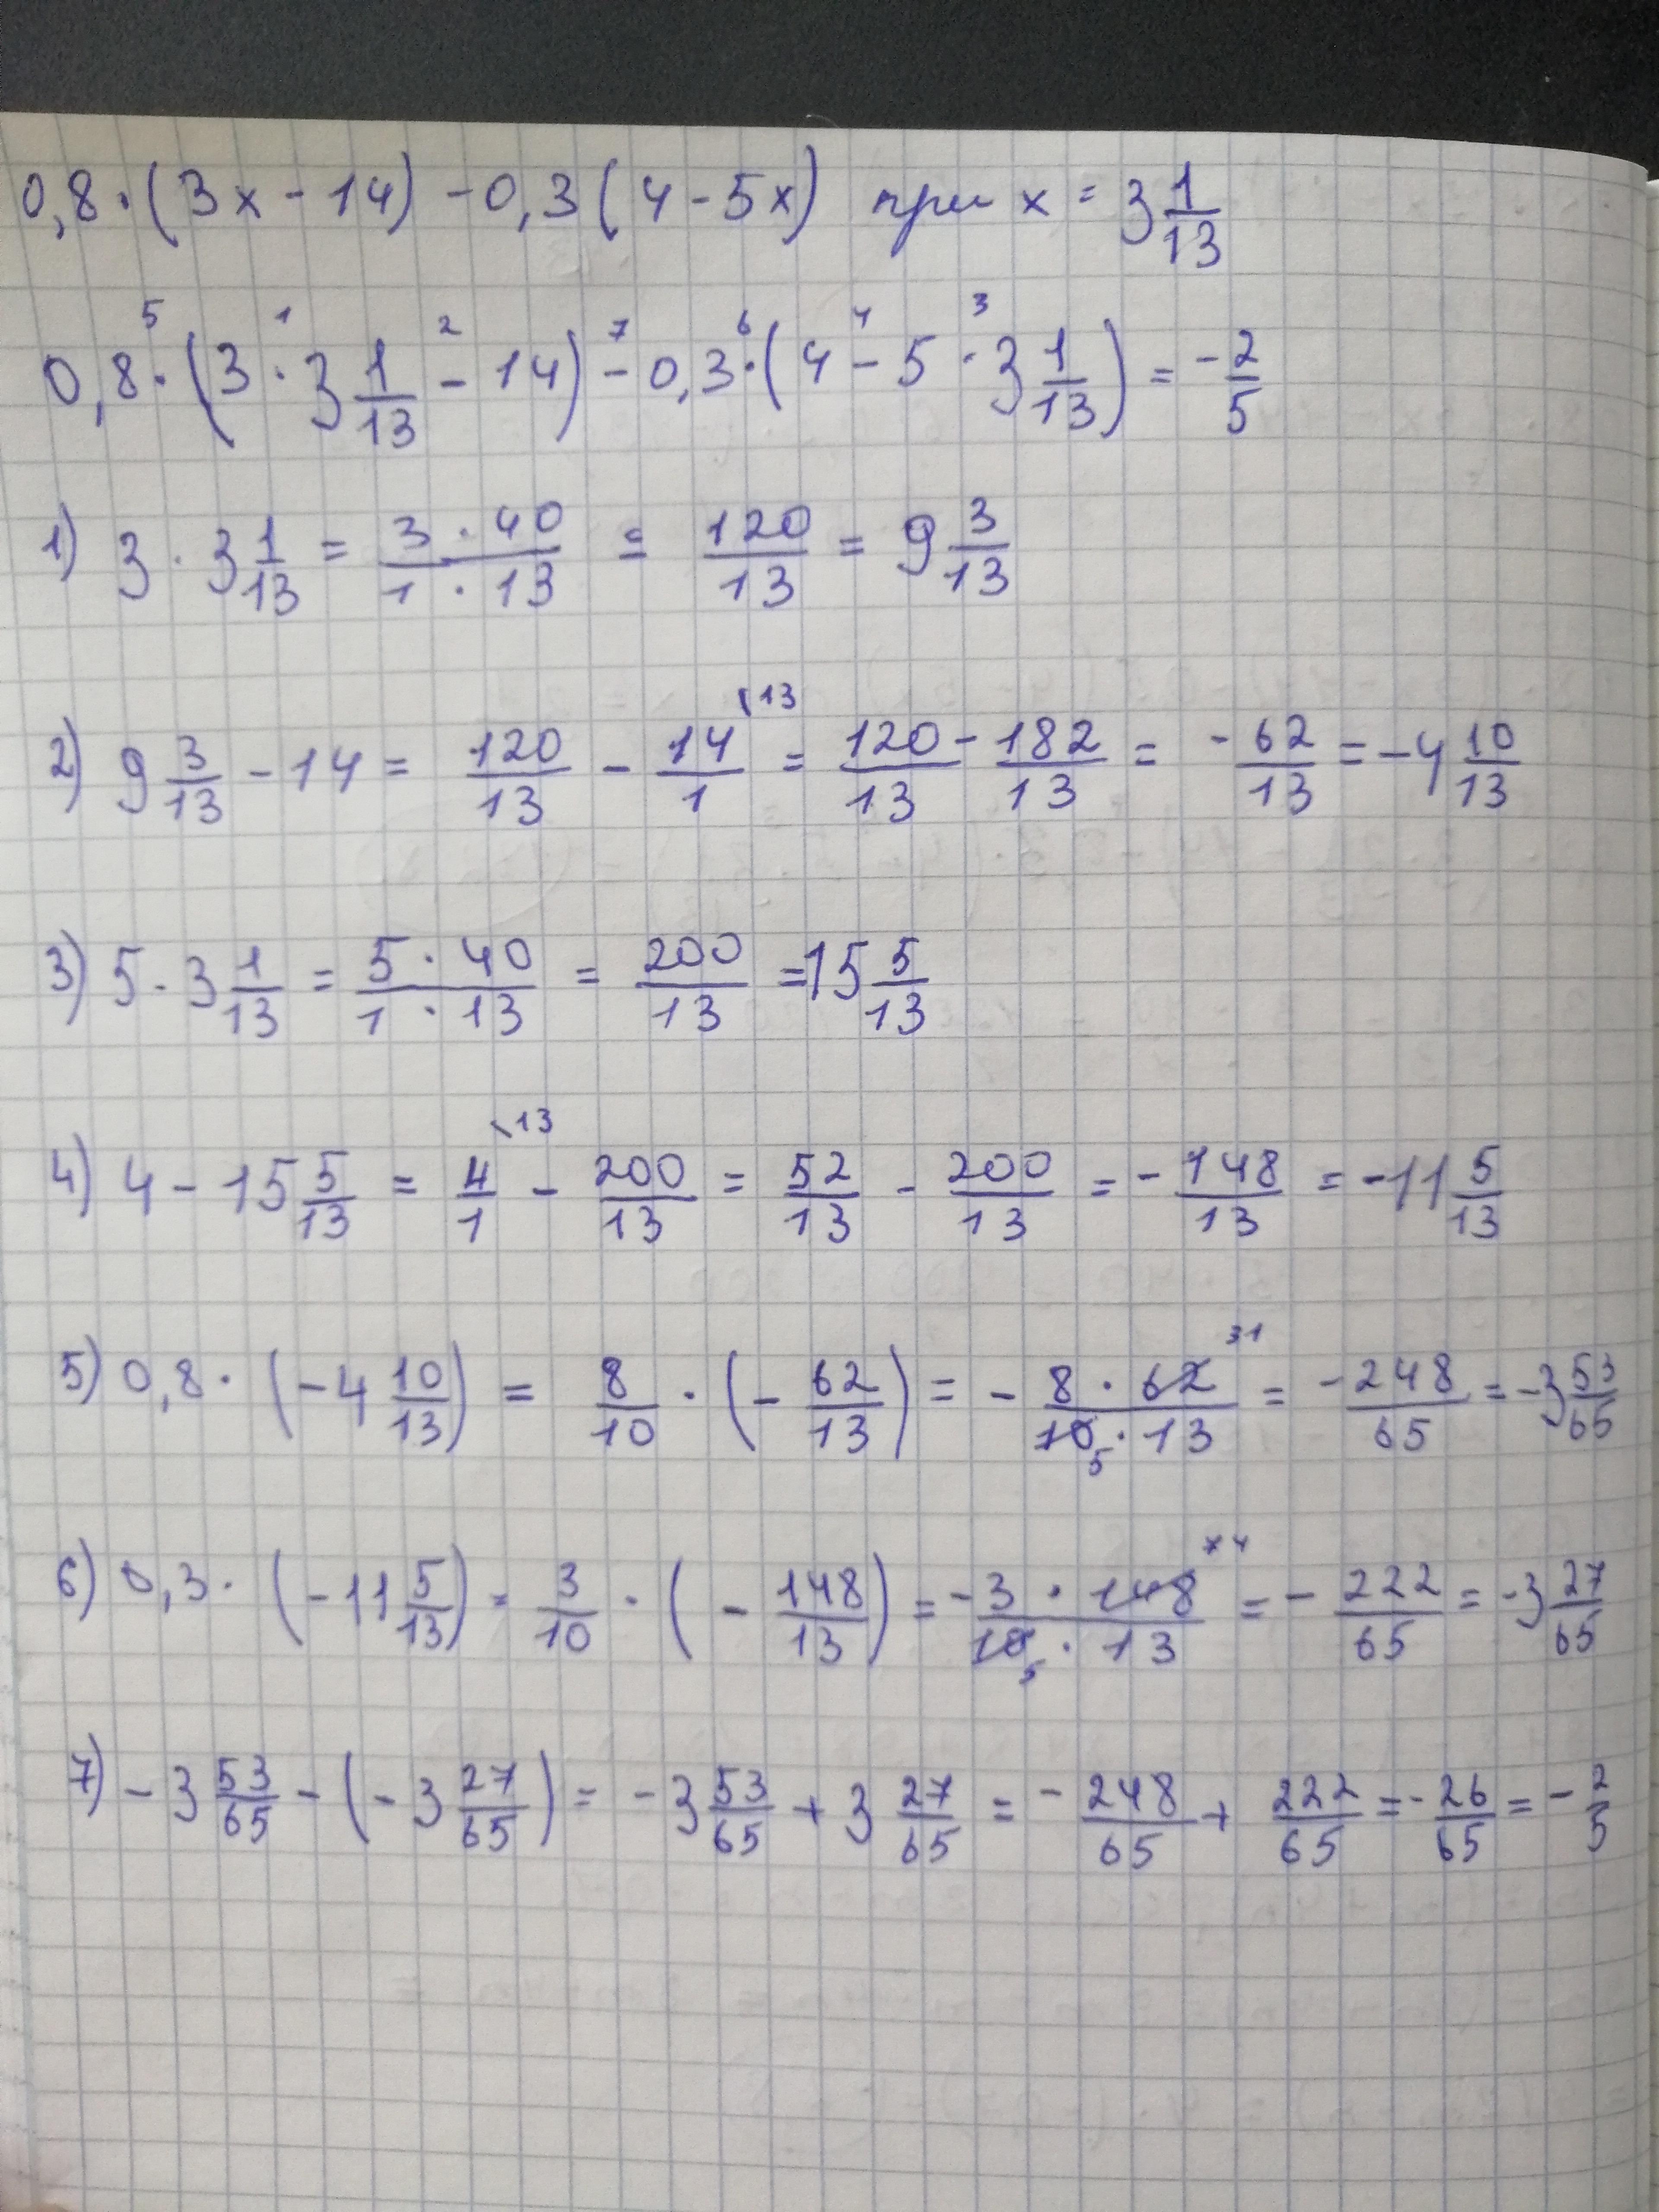 0,8·(3x-14)-0,3(4-5x) при x = 3 1/13
0,8·(3·3 1/13 - 14) - 0,3·(4 - 5·3 1/13) = -2/5
1) 3·3 1/13 = 3·40/1·13 = 120/13 = 9 3/13
2) 9 3/13 - 14 = 120/13 - 14/1 \13 = 120/13 - 182/13 = -62/13 = -4 10/13
3) 5·3 1/13 = 5·40/1·13 = 200/13 = 15 5/13
4) 4 - 15 5/13 = 4/1 \13 - 200/13 = 52/13 - 200/13 = -148/13 = -11 5/13
5) 0,8·(-4 10/13) = 8/10·(-62/13) = - 8·62 31/10 5·13 = -248/65 = -3 53/65
6) 0,3·(-11 5/13) = 3/10·(-148/13) = -3·148 74/10 5·13 = -222/65 = -3 27/65
7) -3 53/65 - (-3 27/65) = -3 53/65 + 3 27/65 = -248/65 + 222/65 = -26/65 = -2/5